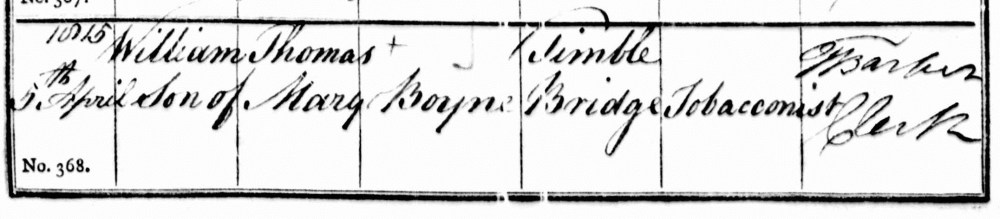 1815 William Thomas + Timble W Barker
5th April Son of Mary Boyne Bridge Tobacconist Clerk
No. 368.